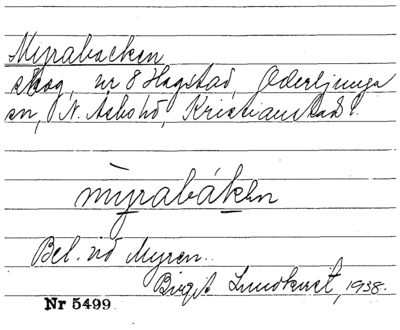 Myrabacken
skog, nr 8 Hagstad, Oderljunga
sn, N. Åsbo hd, Kristianstads l.
m̀yrabáken
Bel. vid Myren.
Birgit Lundkvist, 1938.
Nr 5499